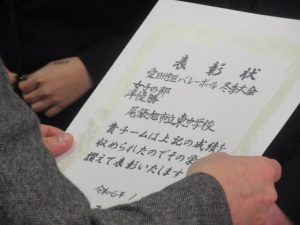 表彰状
愛日地区バレーボール冬季大会
女子の部
準優勝
尾張旭市立東中学校
貴チームは上記の成績を
収められたのでその栄
讃えて表彰いたします
令和6年1